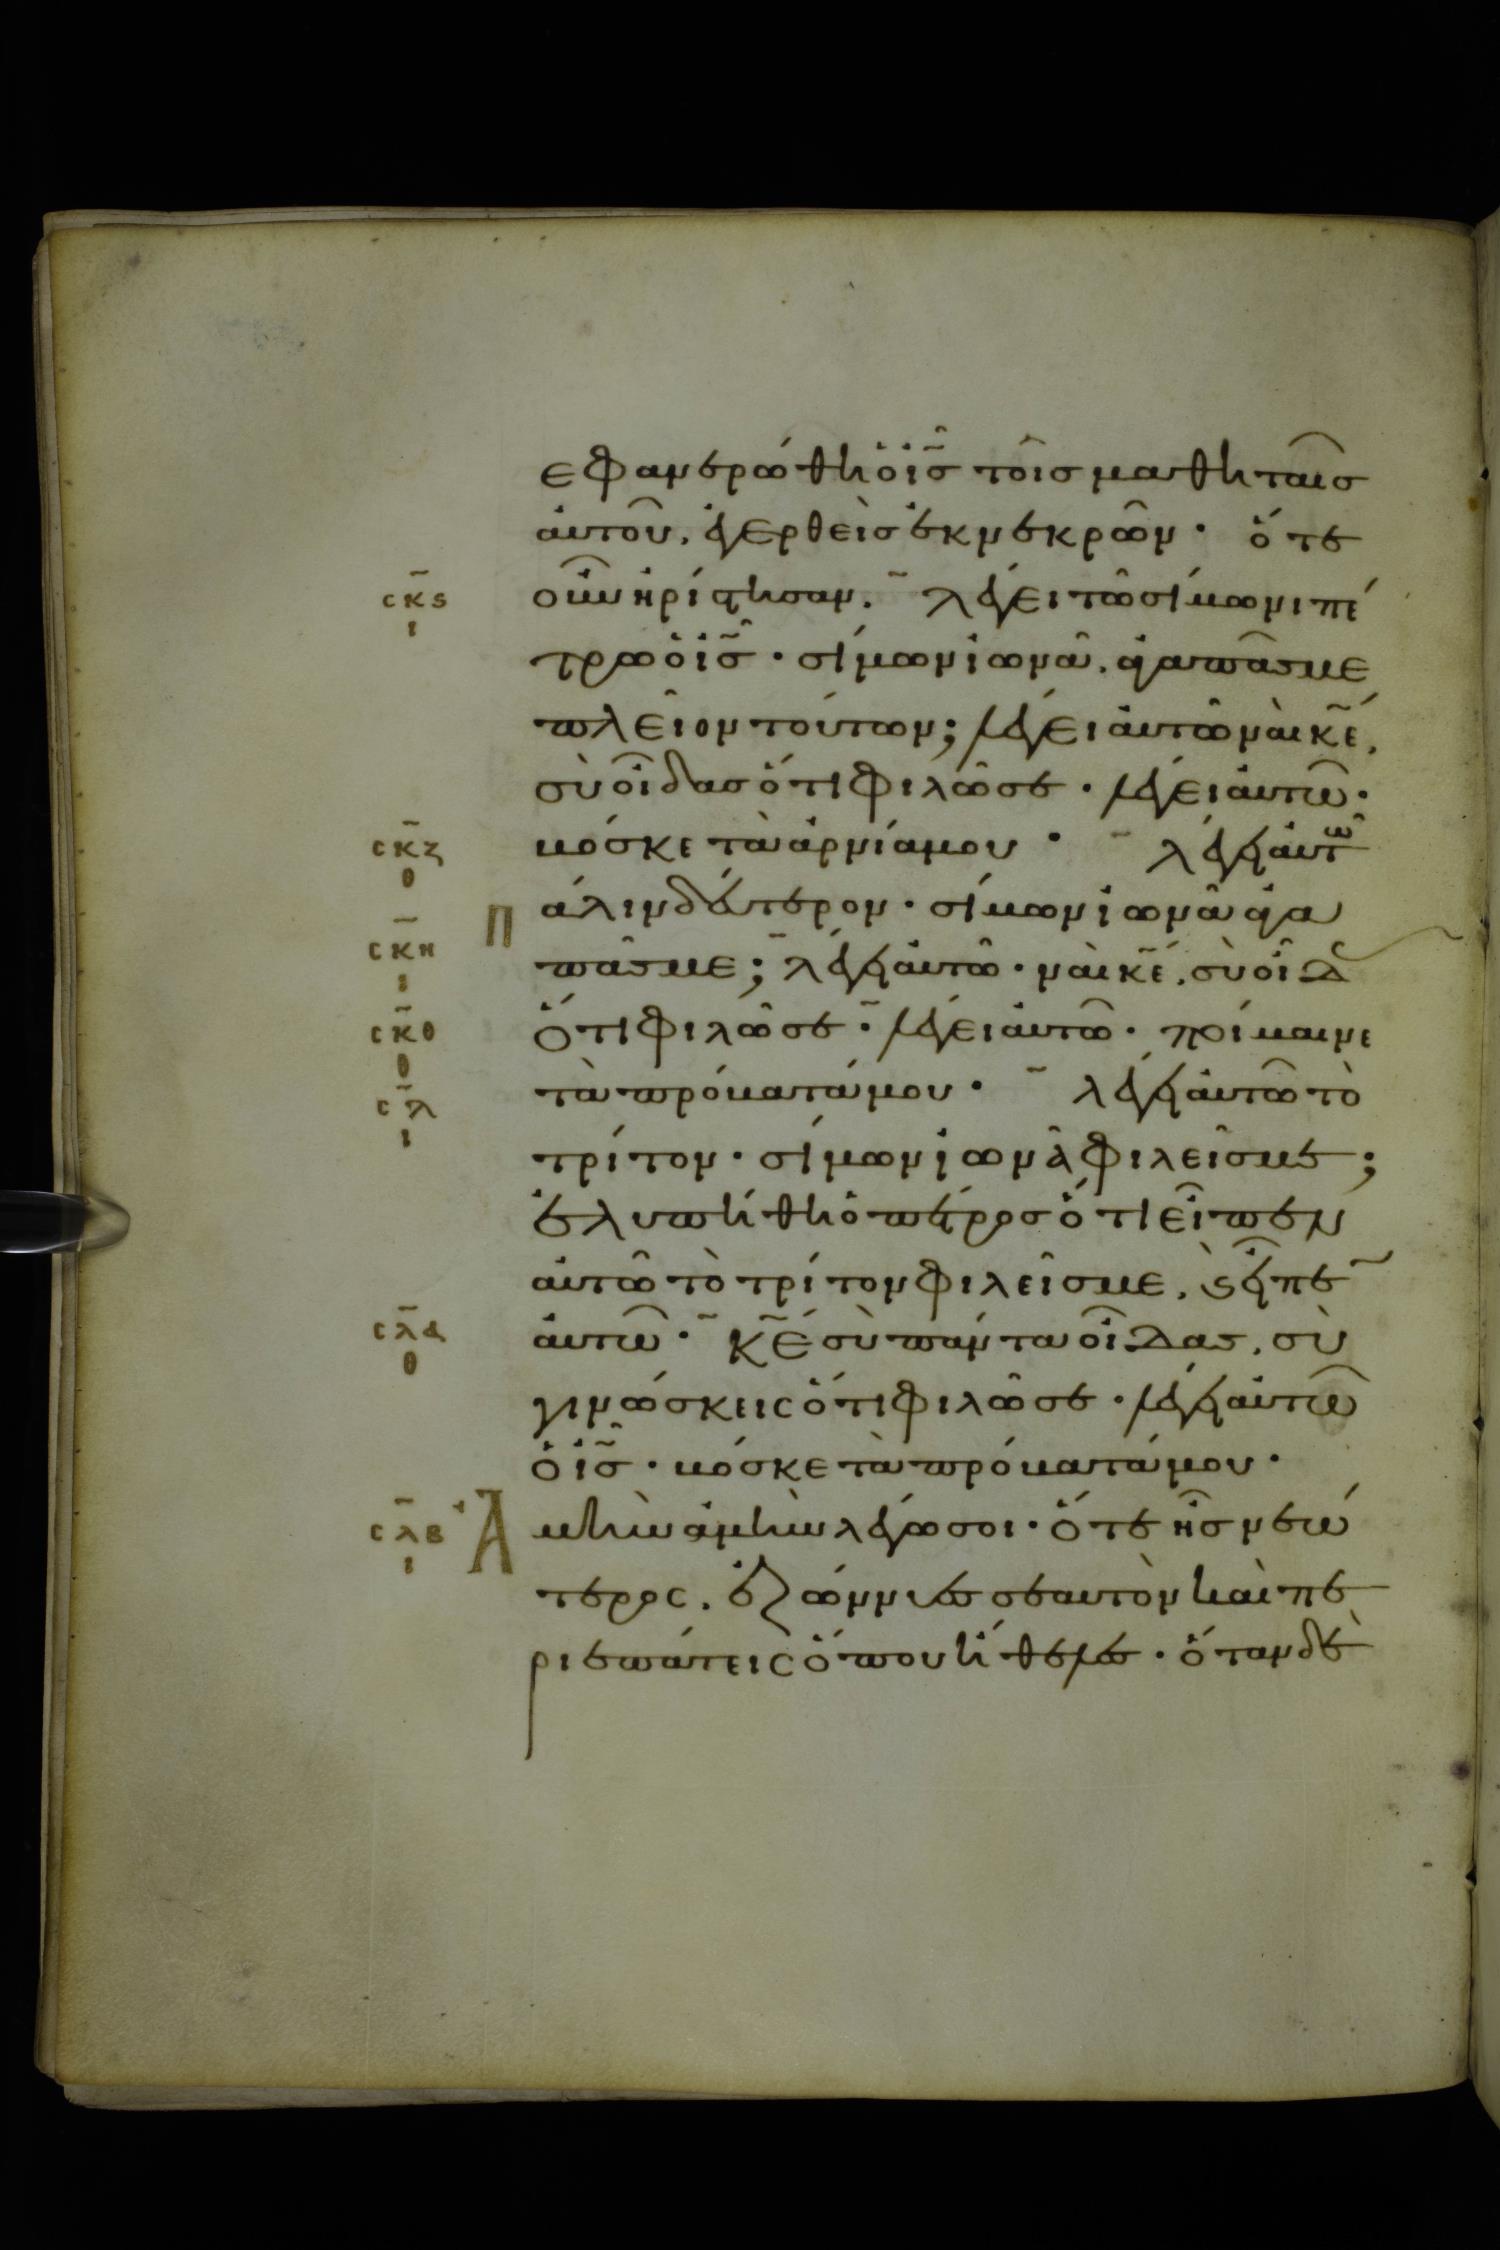 εφανερώθη ὁ ἶς τοῖς μαθηταῖς
αὐτοῦ, ἐγερθεὶς ἐκ νεκρῶν· ὅτε
σκ̅ς ι οὖν ἠρίστησαν. λέγει τῶ σίμωνι πέ
τρω ὁ ἶς· σίμων ἰωνᾶ, ἀγαπᾶς με
πλεῖον τούτων; λέγει αὐτῶ ναὶ κ͞ε,
σὺ οἶδας ὅτι φιλῶ σε· λέγει αὐτῶ·
σκ̅ζ θ βόσκε τὰ ἀρνία μου· λέγει αὐτῶ
σκ̅η ι Πάλιν δεύτερον· σίμων ἰωνᾶ ἀγα
πᾶς με; λέγει αὐτῶ· ναὶ κ͞ε, σὺ οἶδ
σκ̅θ θ ὅτι φιλῶ σε· λέγει αὐτῶ· ποίμαινε
σ̅λ ι τὰ πρόβατά μου· λέγει αὐτῶ τὸ
τρίτον· σίμων ἰωνᾶ φιλεῖς με;
ἐλυπήθη ὁ πέτρος ὅτι εἶπεν
αὐτῶ τὸ τρίτον φιλεῖς με, ϗ εἶπε
σλ̅α θ αὐτῶ· κ͞ε σὺ πάντα οἶδας, σὺ
γινώσκεις ὅτι φιλῶ σε· λέγει αὐτῶ
ὁ ἶς· βόσκε τὰ πρόβατά μου·
σλ̅β ι Ἀμὴν ἀμὴν λέγω σοι· ὅτε ἦς νεώ
τερος, ἐζώννυες σεαυτὸν καὶ πε
ριεπάτεις ὅπου ἤθελες· ὅταν δὲ